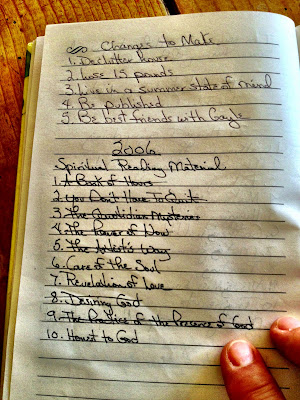 Changes to Make
1. Declutter House
2. Lose 15 pounds
3. Live in a summer state of mind
4. Be published
5. Be best friends with Gayle
2006
Spiritual Reading Material
1. A Book of Hours
2. You Don't Have To Sit
3. The Quotidian Mysteries
4. The Power of Now
5. The Artist's Way
6. Care of the Soul
7. Revelation of Love
8. Desiring God
9. The Practice of the Presence of God
10. to God